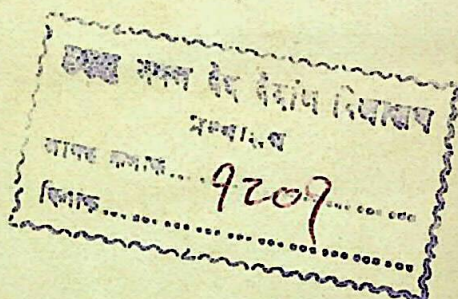 मुमुक्षु भवन वेद वेदांग विद्यालय
ग्रन्थालय
आगत क्रमांक....१२०१............
दिनांक....................................